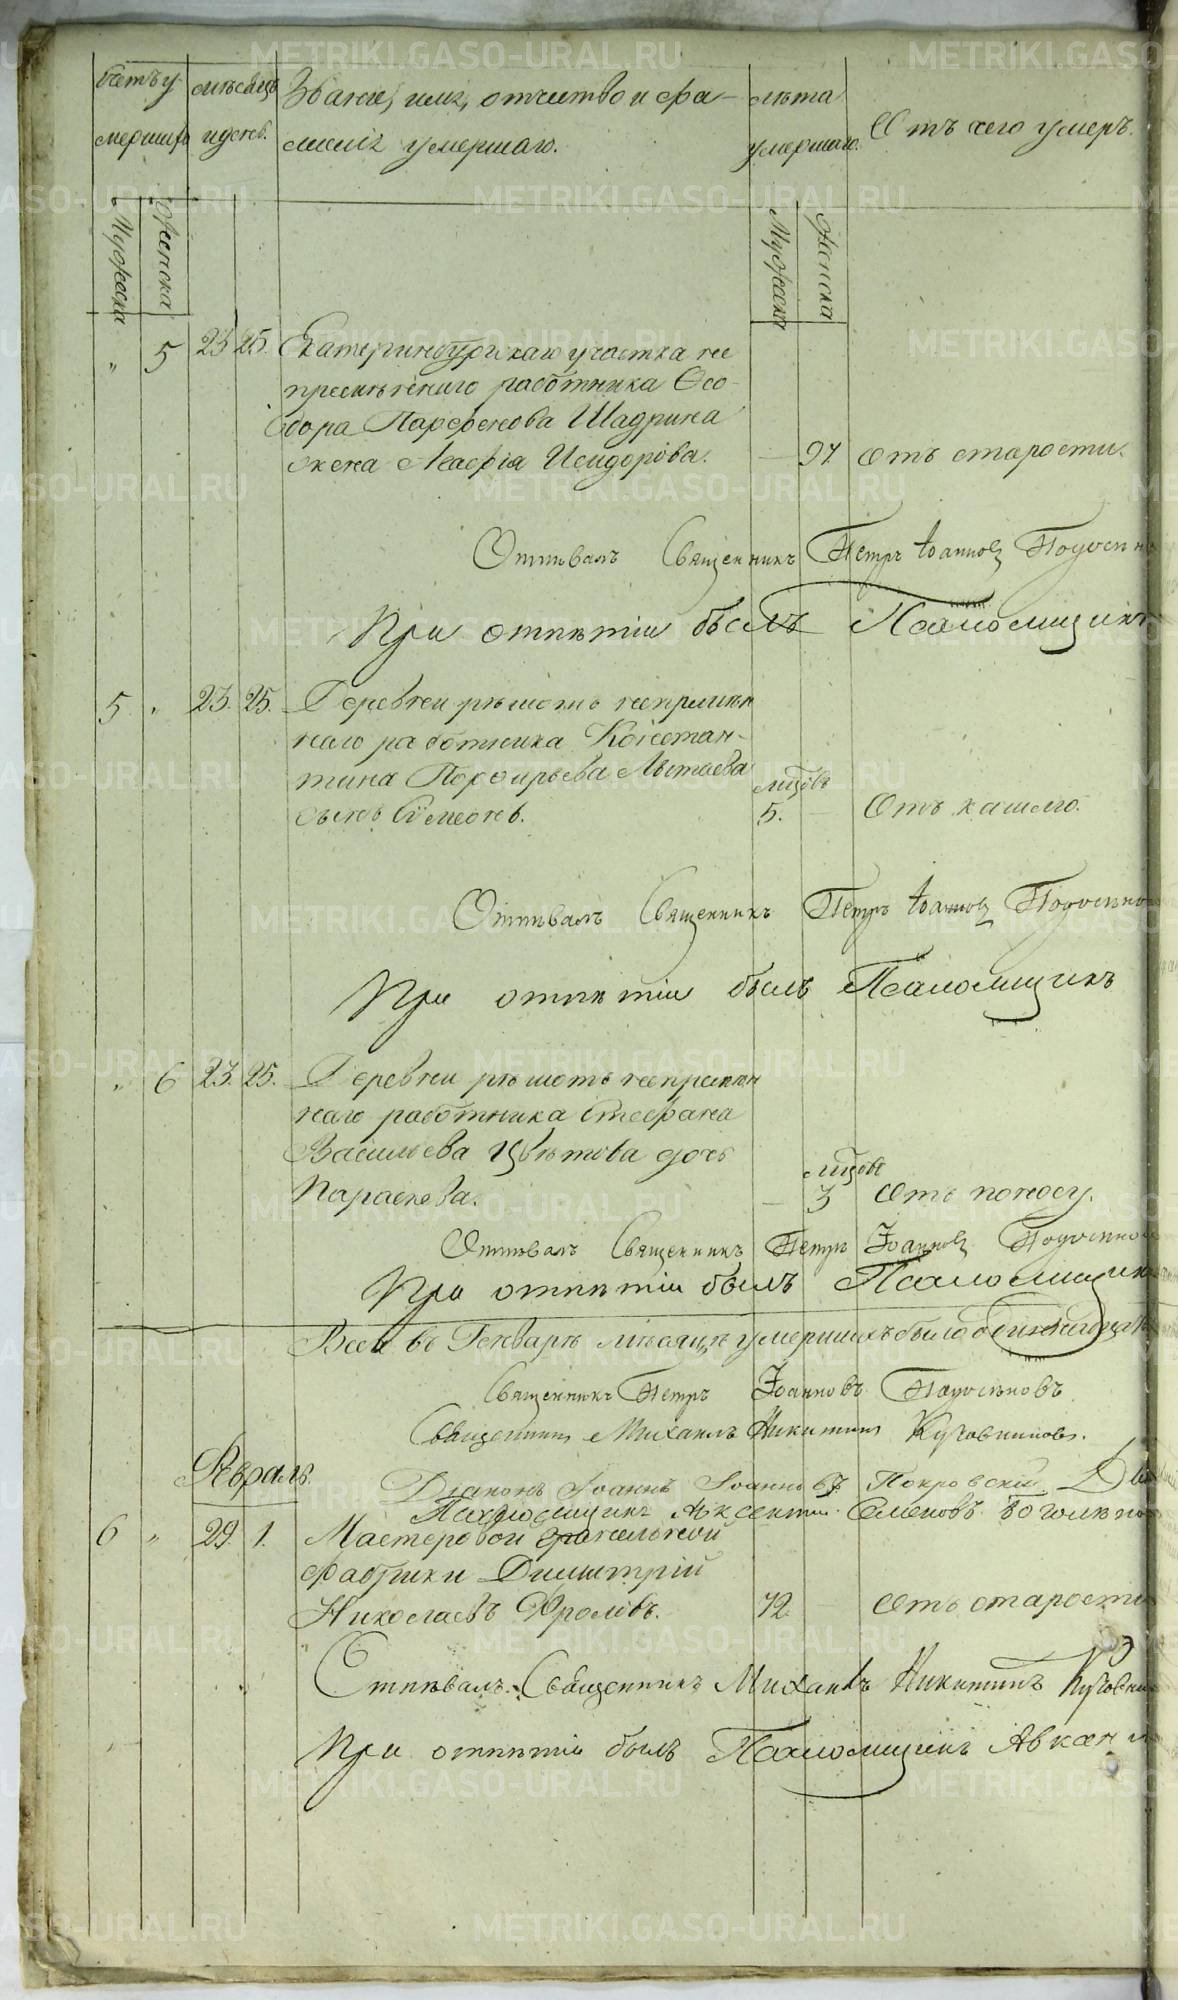 METRIKI.GASO-URAL.RU
счетъ у-
мершихъ
мѣсяцъ
и день.
Званіе, имя, отчество и фа-
милія умершаго.
лѣта
умершаго.
Отъ чего умеръ.
Мужеска
Женска
Мужеска
Женска
" 5 23 25. Екатеринбургскаго участка не
премѣннаго работника Ѳео-
дора Парфенова Шадрина
жена Агафія Исидорова. — 97. Отъ старости.
Отпѣвалъ Священникъ Петръ Іоанновъ
При отпѣтіи былъ Псаломщикъ
5 " 23. 25. Деревни рѣшотъ непремѣн
наго работника Констан-
тина Порфирьева
сынъ Сѵмеонъ. мцовъ 5. — Отъ кашлю.
Отпѣвалъ Священникъ Петръ Іоанновъ
При отпѣтіи былъ Псаломщикъ
" 6 23. 25. Деревни рѣшотъ непремѣн
наго работника Стефана
Васильева Цвѣтова дочь
Параскева. — мцовъ 3 Отъ поносу.
Отпѣвалъ Священникъ Петръ Іоанновъ
При отпѣтіи былъ Псаломщикъ
Всего въ Генварѣ мѣсяцѣ умершихъ было одиннадцать
Священникъ Петръ Іоанновъ
Священникъ Михаилъ Никитинъ
Февраль.
Діаконъ Іоаннъ Іоанновъ Покровскій
Псаломщикъ Авксентій Семеновъ
6 " 29. 1. Мастеровой гранильной
фабрики Димитрій
Николаевъ Фроловъ. 72 Отъ старости
Отпѣвалъ Священникъ Михаилъ Никитинъ
При отпѣтіи былъ Псаломщикъ